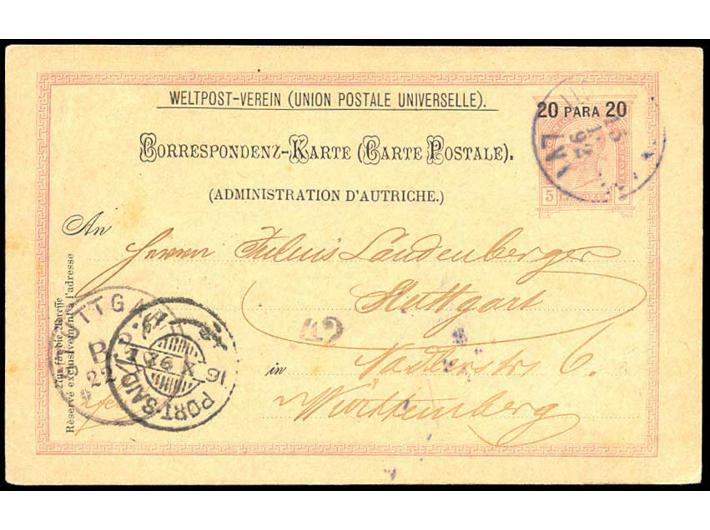 WELTPOST-VEREIN (UNION POSTALE UNIVERSELLE).
20 PARA 20
CORRESPONDENZ-KARTE (CARTE POSTALE).
(ADMINISTRATION D'AUTRICHE.)
5
An
Herrn Julius Landenberger
Stuttgart
in Nadlerstr 6.
Württemberg
Réservé exclusivement à l'adresse
PORT-SAID
X 91
TTG
22